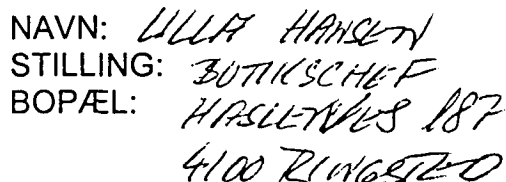 NAVN: ULLA HANSEN
STILLING: BUTIKSCHEF
BOPÆL: HASLEVVEJ 187
4100 RINGSTED